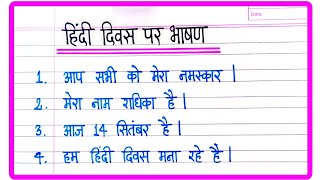 Date:
हिंदी दिवस पर भाषण
1. आप सभी को मेरा नमस्कार |
2. मेरा नाम राधिका है |
3. आज 14 सितंबर है |
4. हम हिंदी दिवस मना रहे है |